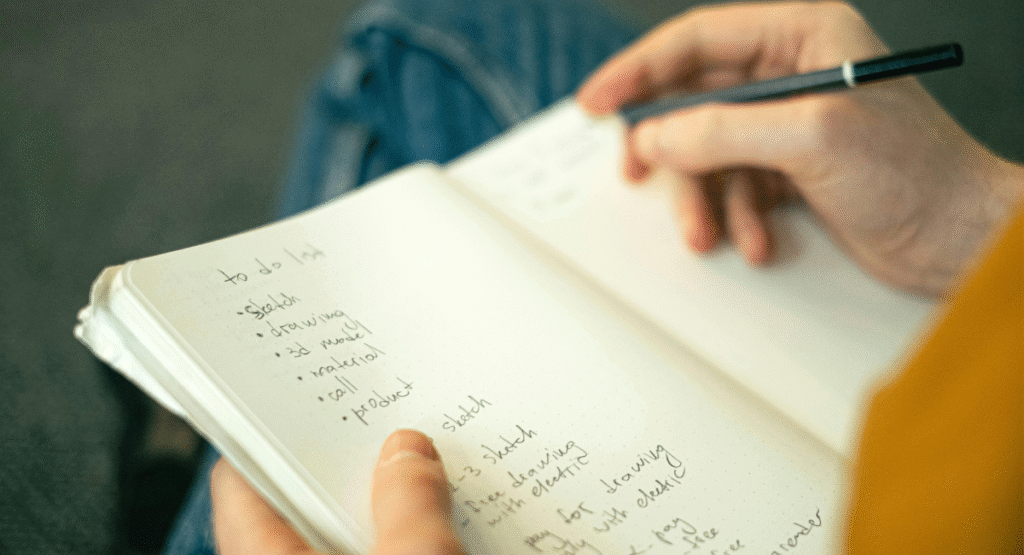 to do list
• sketch
• drawing
• 3d model
• material
• call
• product
sketch
-3 sketch
- free drawing
with electric
pay for drawing
with electric
pay
free
render